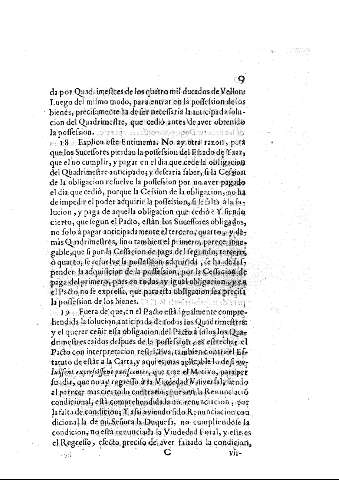 9
da por Quadrimestres de los quatro mil ducados de Vellon:
Luego del mismo modo, para entrar en la possession de los
bienes, precisamente ha de ser necessaria la anticipada solu-
cion del Quadrimestre, que cediò antes de aver obtenido
la possession.
18 Explico este Entimema. No ay otra razon, para
que los Sucessores perdan la possession del Estado de
que el no cumplir, y pagar en el dia que cede la obligacion
del Quadrimestre anticipado; y desearìa saber, si la Cession
de la obligacion resuelve la possession por no aver pagado
el dia que cediò, porque la Cession de la obligacion, no ha
de impedir el poder adquirir la possession, si le falta à la so-
lucion, y paga de aquella obligacion que cediò? Y siendo
cierto, que segun el Pacto, estàn los Sucessores obligados,
no solo à pagar anticipadamente el tercero, quarto, y dè-
màs Quadrimestres, sino tambien el primero, parece inne-
gable, que si por la Cessacion de paga del segundo, tercero,
ò quarto, se resuelve la possession adquirida, se ha de sus-
pender la adquisicion de la possession, por la Cessacion de
paga del primero, pues en todas ay igual obligacion, y en
el Pacto no se expressa, que para esta obligacion sea precisa
la possession de los bienes.
19 Fuera de que, en el Pacto està igualmente compre-
hendida la solucion anticipada de todos los Quadrimestres:
y el querer ceñir esta obligacion del Pacto à solos los Qua-
drimestres caìdos despues de la possession, es estrechar el
Pacto con interpretacion restrictiva, tambien contra el Es-
tatuto de estàr à la Carta, y aqui es mas aplicable lo de
que trae el Motivo, para per-
suadir, que no ay regresso à la Viudedad Vniversal, siendo
al parecer mas cierto lo contrario; pues en la Renunciacion
condicional, està comprehendida la no renunciacion, por
la falta de condicion; Y assi aviendo sido Renunciacion con-
dicional la de mi Señora la Duquesa, no cumpliendose la
condicion, no està renunciada la Viudedad Foral, y esse es
el Regresso, efecto preciso de aver faltado la condicion,
C viu-